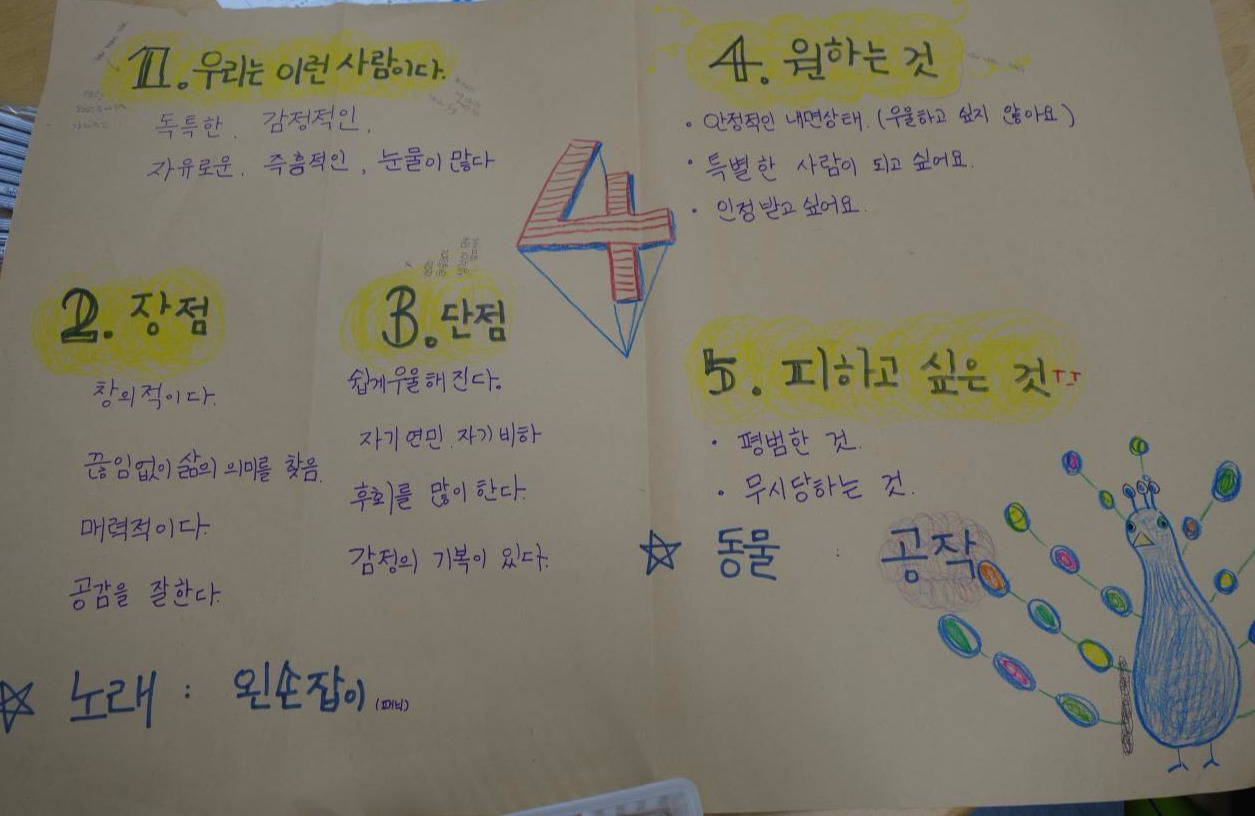 1. 우리는 이런 사람이다.
독특한. 감정적인.
자유로운. 즉흥적인, 눈물이 많다
2. 장점
창의적이다.
끊임없이 삶의 의미를 찾음.
매력적이다.
공감을 잘한다.
3. 단점
쉽게우울해진다.
자기연민. 자기비하
후회를 많이 한다.
감정의 기복이 있다.
☆ 노래 : 왼손잡이 (패닉)
4
4. 원하는 것
• 안정적인 내면상태. (우울하고 싶지 않아요)
• 특별한 사람이 되고 싶어요.
• 인정받고 싶어요.
5. 피하고 싶은 것ㅜㅜ
• 평범한 것.
• 무시당하는 것.
☆ 동물 : 공작